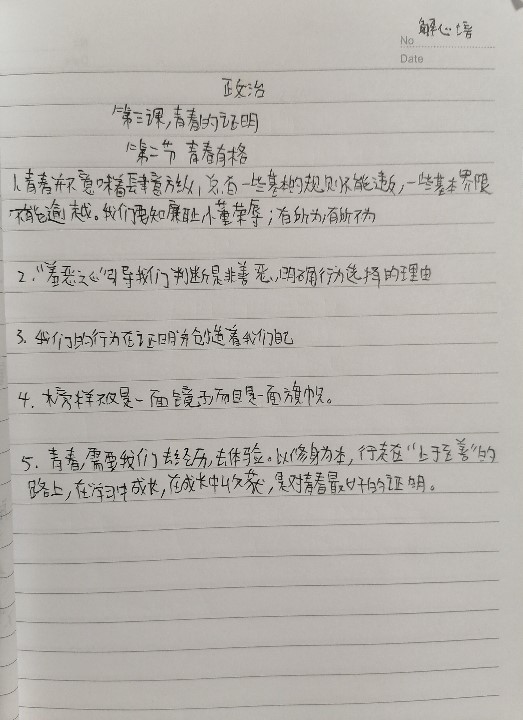 解心培
No
Date
政治
第三课,青春的证明
第二节 青春有格
1.青春并不意味着肆意放纵,总有一些基本的规则不能违反,一些基本界限
不能逾越。我们要知廉耻,懂荣辱;有所为,有所不为
2."羞恶之心"引导我们判断是非善恶,明确行为选择的理由
3.我们的行为在证明并创造着我们自己
4.榜样不仅是一面镜子,而且是一面旗帜。
5.青春,需要我们去经历,去体验。以修身为本,行走在"止于至善"的
路上,在学习中成长,在成长中收获,是对青春最好的证明。